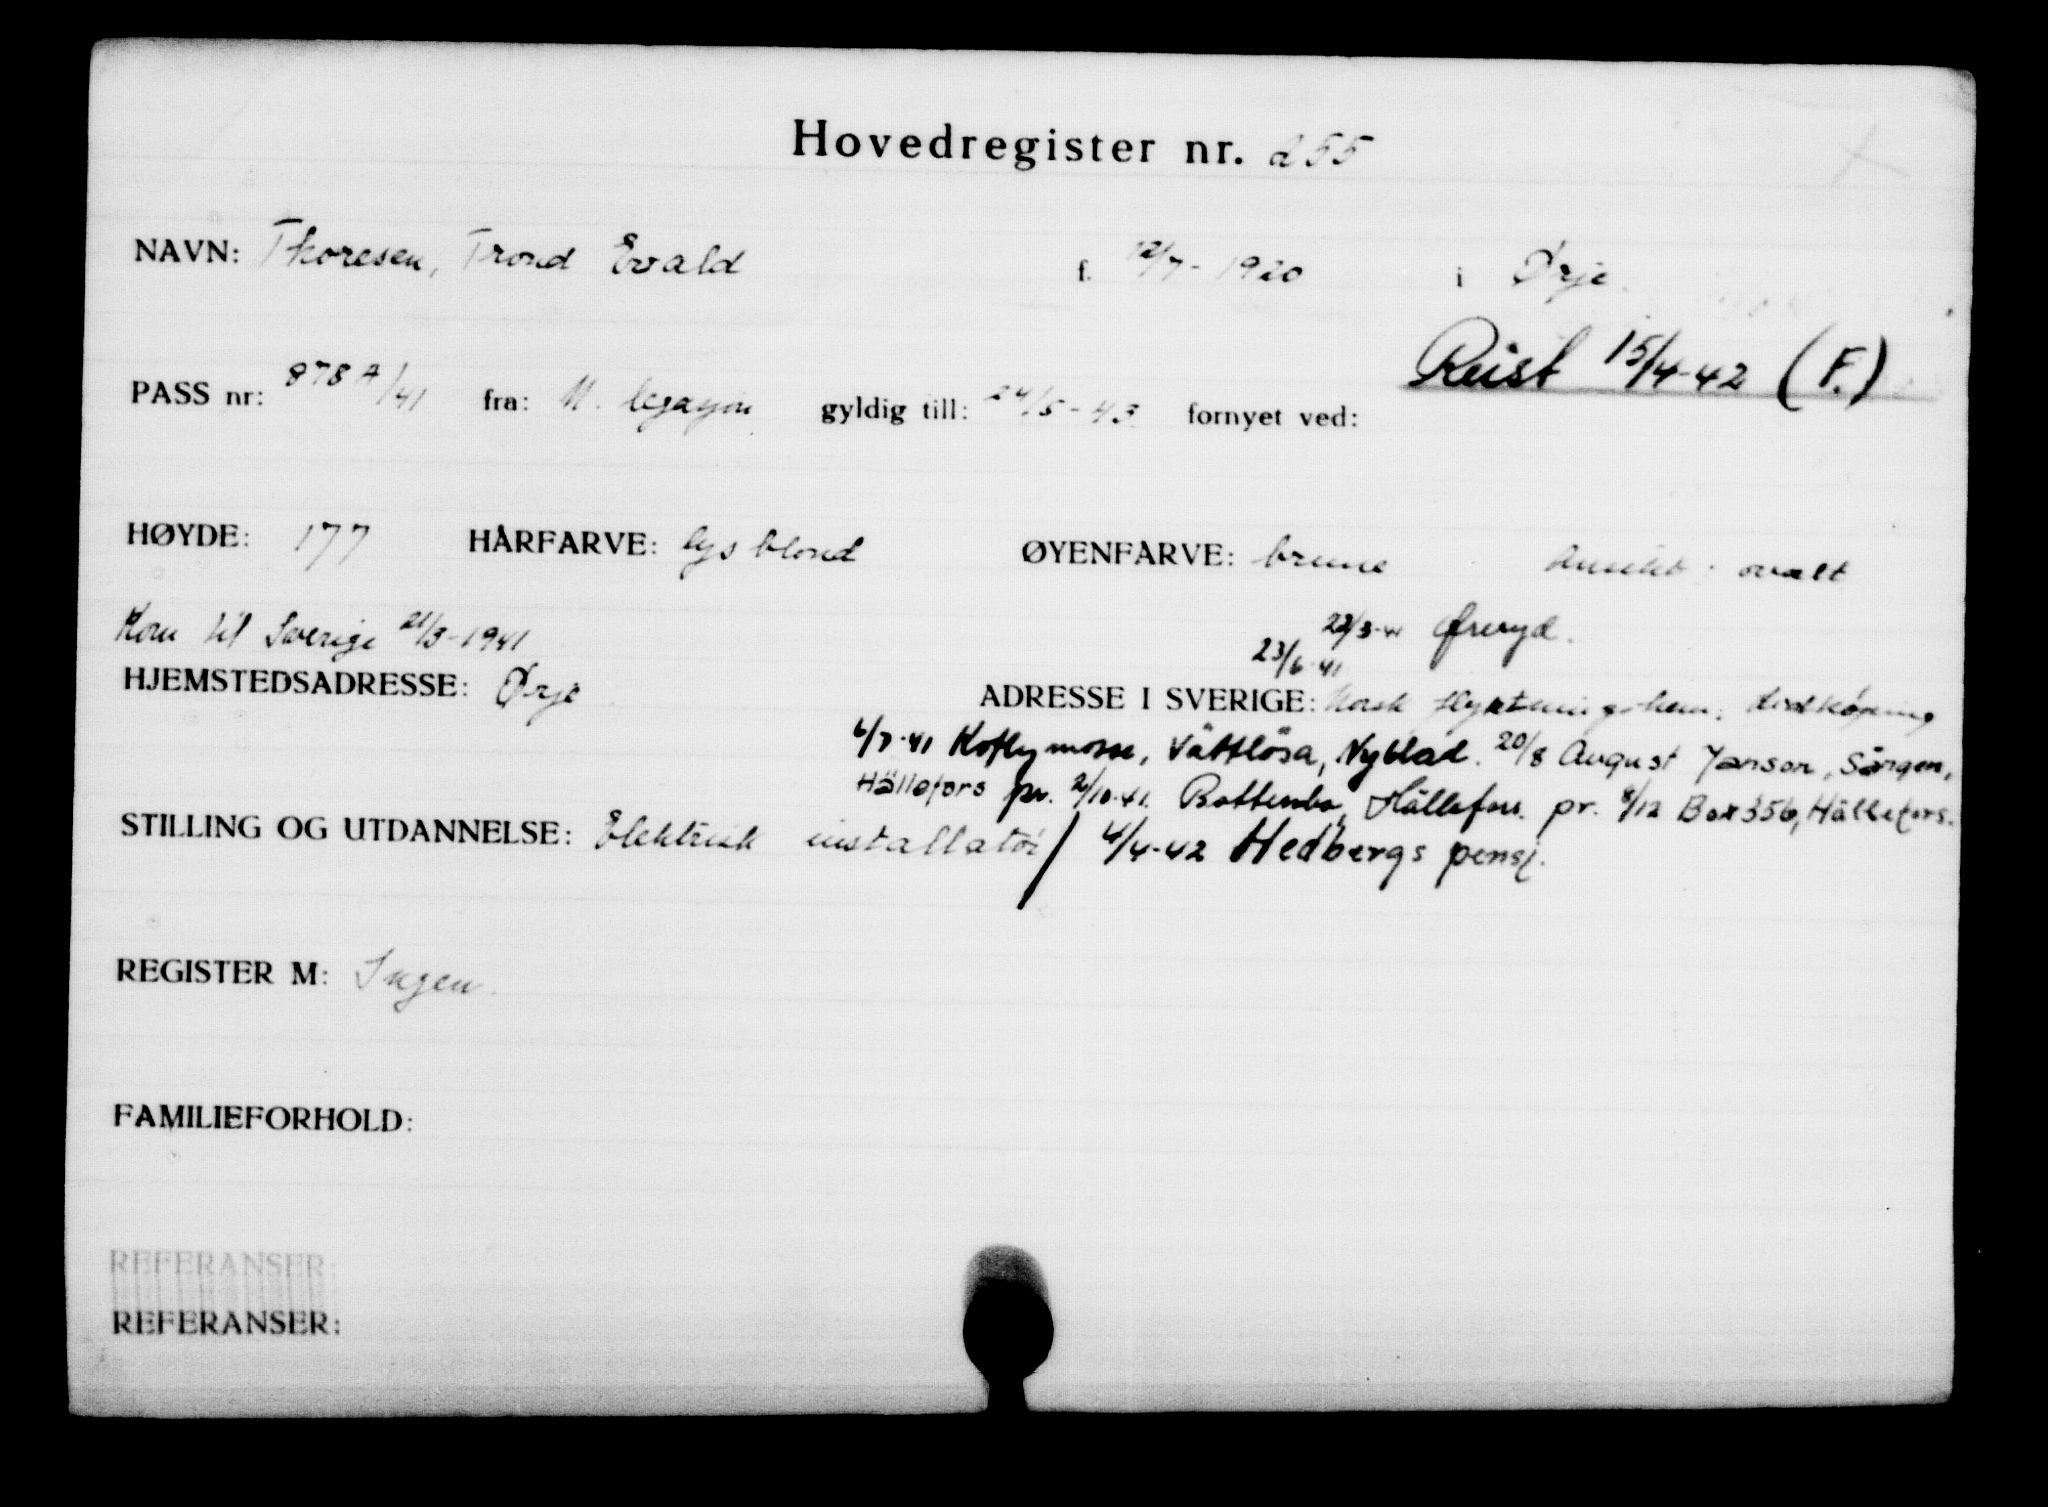 Hovedregister nr. 255
NAVN: Thoresen, Trond Evald f. 12/7-1920 i Ørje.
Reist 15/4-42 (F.)
PASS nr: 878 A/41 fra: N. legasjon gyldig till: 24/5-43 fornyet ved:
HØYDE: 177 HÅRFARVE: lys blond ØYENFARVE: brune Ansikt: ovalt
Kom til Sverige 21/3-1941 22/3-41 Øreryd.
23/6-41
HJEMSTEDSADRESSE: Ørje ADRESSE I SVERIGE: Norsk flyktningehem, Lidköping
6/7-41 Vättlösa, Nyblad. 20/8 August Janson, Sången,
Hällefors pr. 2/10-41. Hällefors. pr. 8/12 Box 356, Hällefors.
STILLING OG UTDANNELSE: Elektrisk installatør / 4/4-42 Hedbergs pensj.
REGISTER M: Ingen.
FAMILIEFORHOLD:
REFERANSER:
REFERANSER: